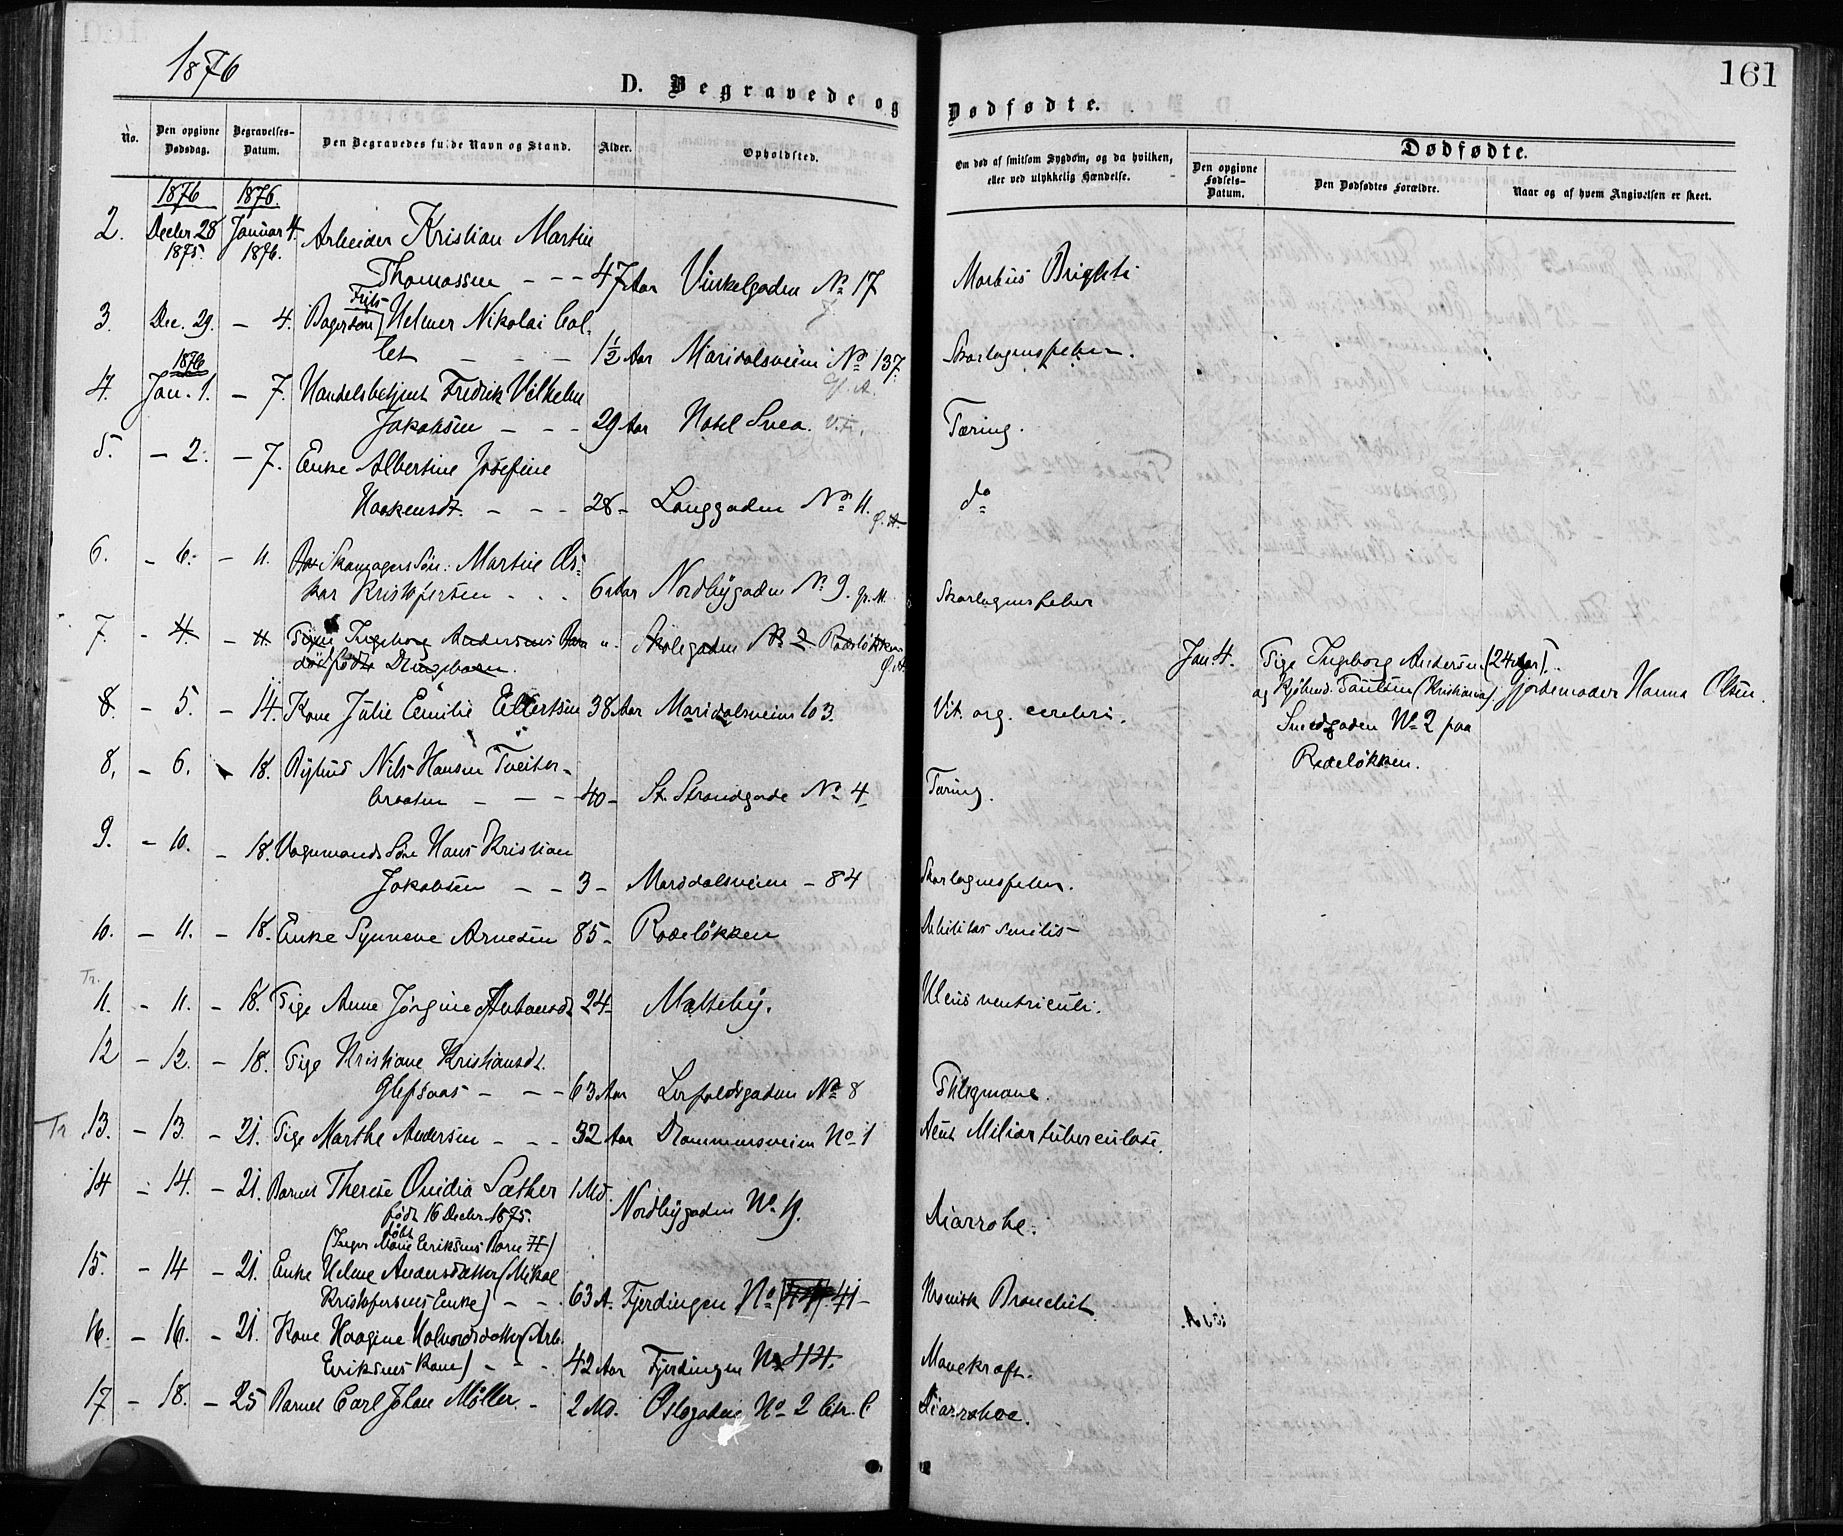 1876
161
D. Begravede og Dødfødte.
No.
Den opgivne Dødsdag.
Begravelses-Datum.
Den Begravedes fulde Navn og Stand.
Alder.
Opholdsted.
Om død af smitsom Sygdom, og da hvilken, eller ved ulykkelig Hændelse.
Dødfødte.
Den opgivne Fødsels-Datum.
Den Dødfødtes Forældre.
Naar og af hvem Angivelsen er skeet.
1876 1876.
2. Decbr 28 Januar 4. Arbeider Kristian Martin
1875. 1876.
Thomassen - - - 47 Aar Vinkelgaden No 17 Morbus Brighti
Frits
3. Dec. 29. - 4. Bagersøn Helmer Nikolai Col-
let - - - 1½ Aar Maridalsveien No 137. Skarlagensfeber.
1876
4. Jan. 1. - 7. Handelsbetjent Fredrik Vilhelm
Jakobsen - - - 29 Aar Hotel Svea. Tæring.
5. - 2. - 7. Enke Albertine Josefine
Haakensdt. - - - 28 - Langgaden No 11. G. A. do
6. - 6. - 11. Skomagers Søn: Martin Os-
kar Kristofersen - - - 6 Aar Nordbygaden No 9. Skarlagensfeber
7. - 4 - 11. Pige Ingeborg Andersens Barn " Skolegaden No 2 Rodeløkken
dødfødte Drengebarn.
Jan. 4. Pige Ingeborg Andersen (24 Aar)
og Paulsen (Kristiania) Gjordemoder Hanna Olsen.
Smedgaden No 2 paa
Rodeløkken.
8. - 5. - 14. Kone Julie Emilie Ellertsen 38 Aar Maridalsveien 103. Vit. org. cerebri.
8. - 6. - 18. Nils Hansen Tveiter-
braaten - - - 40 - St. Strandgade No 4 Tæring.
9. - 10. - 18. Vognmands Søn Hans Kristian
Jakobsen - - 3 - Maridalsveien - 84 Skarlagensfeber.
10. - 11. - 18. Enke Synneve Arnesen 85 - Rodeløkken Debilitas senilis
Tr.
11. - 11. - 18. Pige Anne Jørgine 24 - Malteby. Ulcus ventriculi.
12 - 12. - 18. Pige Kristiane Kristiansdt.
- - - 63 Aar No 8 Phlegmone.
Tr 13. - 13. - 21. Pige Marthe Andersen - - - 32 Aar Drammensveien No 1 Acut Miliartuberculose.
14 - 14. - 21. Barnet Therese Ovidia Sæther 1 Md. Nordbygaden No 9. Diarrohe.
født 16 Decbr. 1875.
døbt
(Inger Marie Eriksens Barn)
15. - 14 - 21. Enke Helene Andersdatter (Mikal
Kristofersens Enke) - - 63 A. Fjerdingen No 41 - Kronisk Bronchit
16. - 16. - 21. Kone Haagine Halvordsdatter (Arb.
Eriksens Kone) - - - 42 Aar Fjerdingen No 44. Mavekræft.
17 - 18. - 25 Barnet Carl Johan Møller. - 2 Md. Oslogaden No 2 litr. C Diarrohoe.